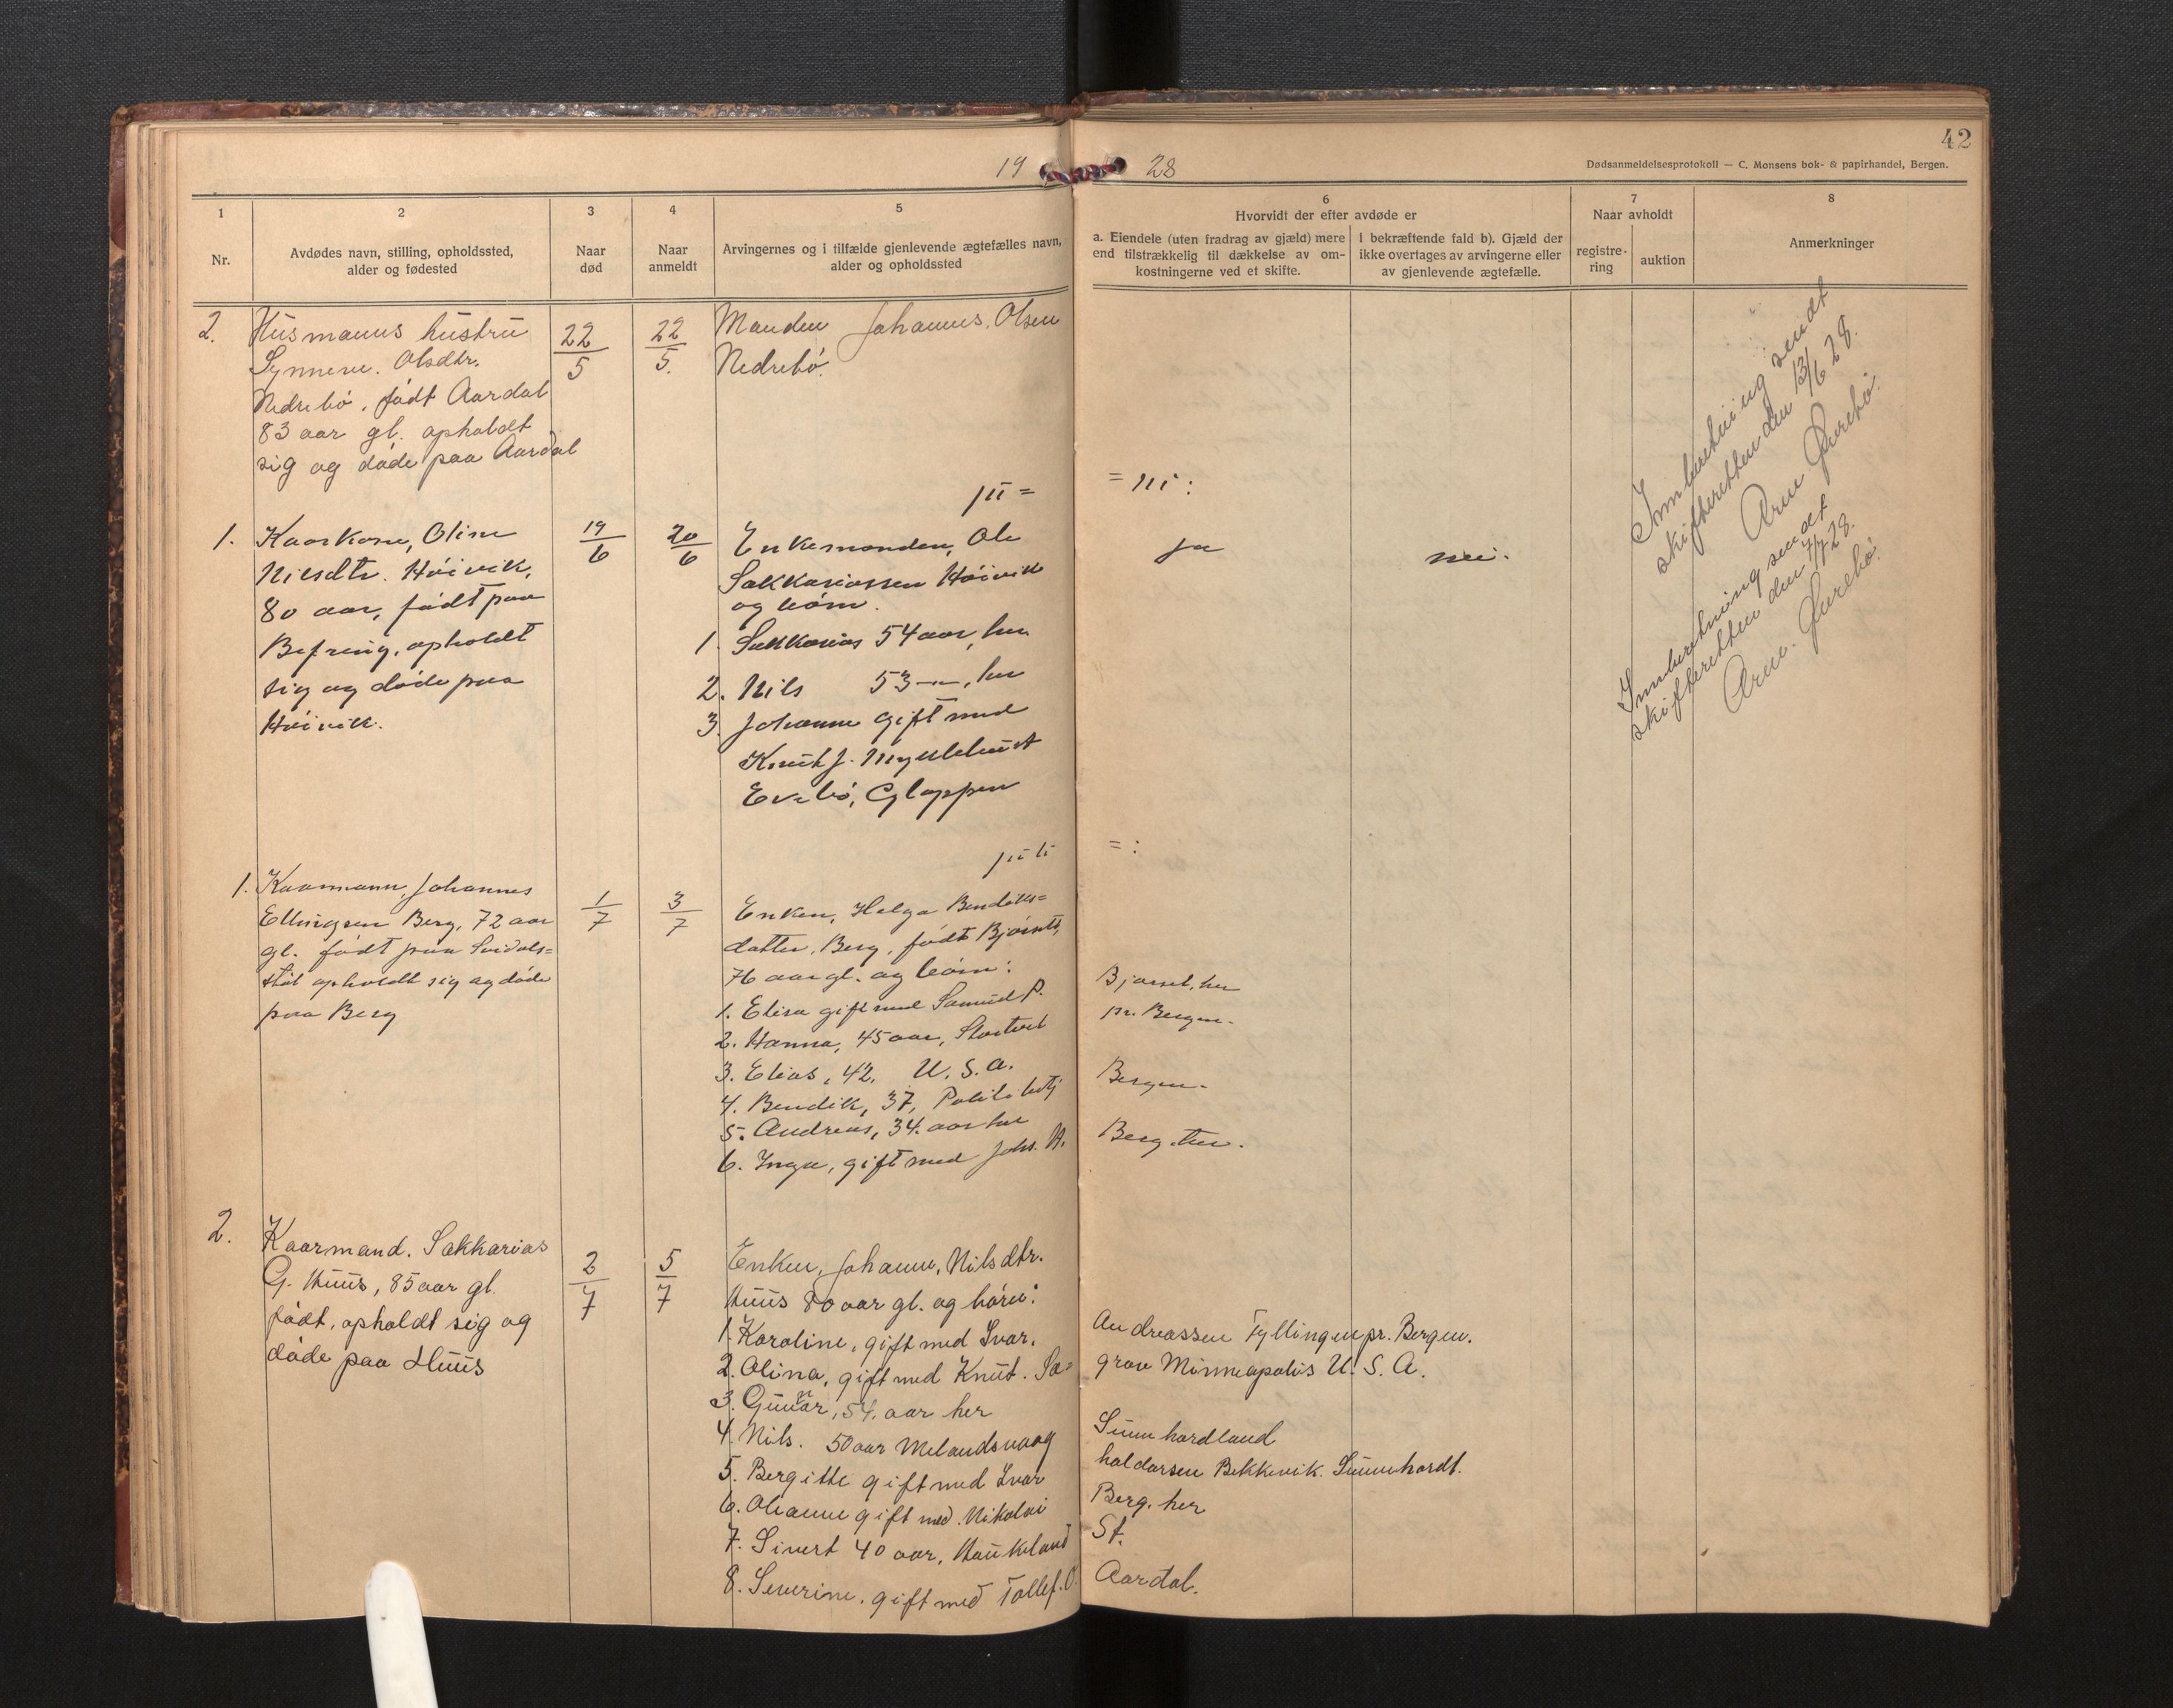 42
19 28
Dødsanmeldelsesprotokoll — C. Monsens bok- & papirhandel, Bergen.
1
Nr.
2
Avdødes navn, stilling, opholdssted,
alder og fødested
3
Naar
død
4
Naar
anmeldt
5
Arvingernes og i tilfælde gjenlevende ægtefælles navn,
alder og opholdssted
6
Hvorvidt der efter avdøde er
a. Eiendele (uten fradrag av gjæld) mere
end tilstrækkelig til dækkelse av om-
kostningerne ved et skifte.
I bekræftende fald b). Gjæld der
ikke overtages av arvingerne eller
av gjenlevende ægtefælle.
7
Naar avholdt
registre-
ring
auktion
8
Anmerkninger
2. Husmanns hustru
Synneve. Olsdtr.
Nedrebö, födt Aardal
83 aar gl. opholdt
sig og döde paa Aardal
22/5
22/5.
Manden Johannes. Olsen
Nedrebö.
Innberetning sendt
skifteretten den 13/6 28.
Arne
ju = ni:
1. Kaarkone, Oline
Nilsdtr. Höivik,
80 aar, födt paa
Befring, opholdt
sig og döde paa
Höivik.
19/6
20/6
Enkemanden, Ole
Sakkariassen Höivik
og börn.
1. Sakkarias 54 aar, her
2. Nils 53 —"—, her
3. Johanne gift med
Knut J. Myklebust
Evebö, Gloppen
ja
nei.
Innberetning sendt
skifteretten den 7/7 28.
Arne.
juli = :
1. Kaarmann, Johannes
Ellingsen Berg, 72 aar
gl. födt paa
opholdt sig og döde
paa Berg
1/7
3/7
Enken, Helga Bendiks=
datter, Berg, födt
76 aar gl. og börn:
1. Elisa gift med Samuel P. Bjorset, her
2. Hanna, 45 aar, pr. Bergen.
3. Elias, 42, U. S. A.
4. Bendik, 37, Politibetj Bergen.
5. Andreas, 34. aar her
6. Inga, gift med Johs. A. Berg. her.
2. Kaarmand. Sakkarias
G. Huus, 85 aar gl.
födt, opholdt sig og
döde paa Huus
2/7
5/7
Enken, Johanne, Nilsdtr.
Huus 80 aar gl. og börn:
1. Karoline, gift med Ivar. Andreassen Fyllingen pr. Bergen.
2. Olina, gift med Knut. So= grav Minneapolis U. S. A.
3. Gunnar, 54. aar her
4. Nils. 50 aar Melandsvaag Sunnhordland
5. Bergitte gift med Ivar haldorsen Bekkevik. Sunnhordl.
6. Olianne gift med. Nikolai Berg. her
7. Sivert 40 aar, Haukeland St.
8. Severine. gift med Tollef. O. Aardal.